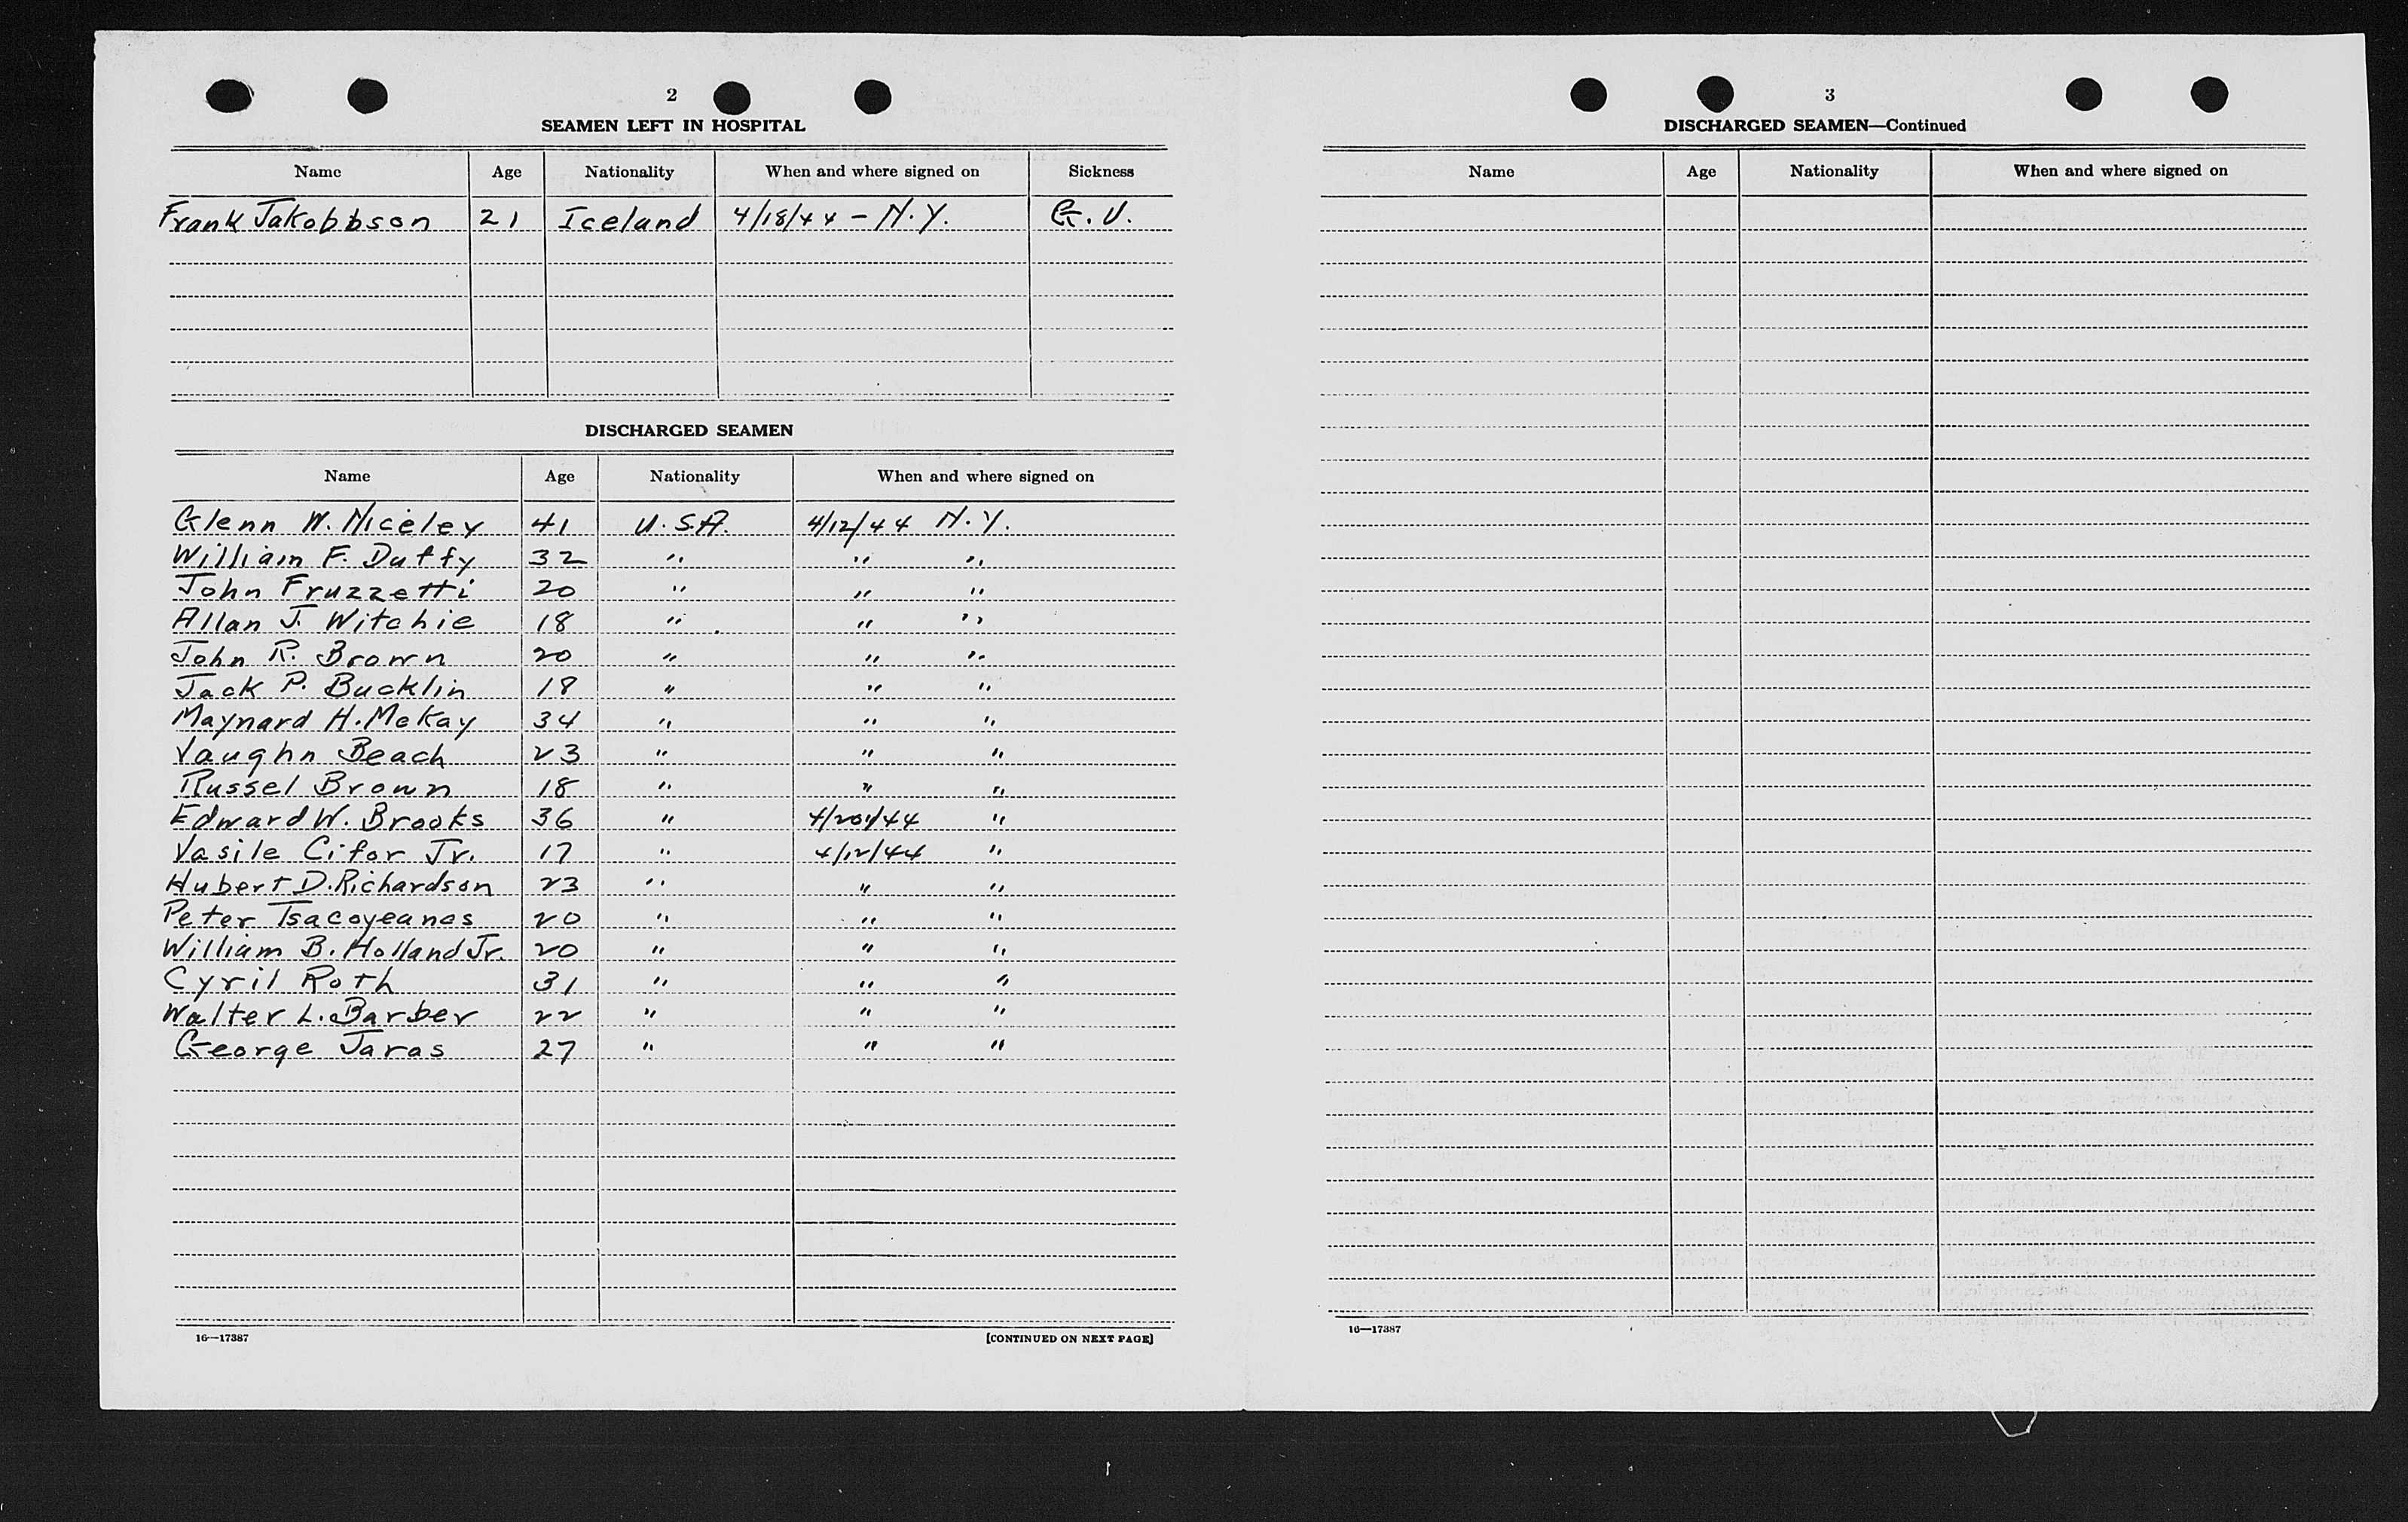 2
SEAMEN LEFT IN HOSPITAL
Name Age Nationality When and where signed on Sickness
Frank Jakobbson 21 Iceland 4/18/44 - N.Y. G.U.
DISCHARGED SEAMEN
Name Age Nationality When and where signed on
Glenn W. Niceley 41 U.S.A. 4/12/44 N.Y.
William F. Duffy 32 " " "
John Fruzzetti 20 " " "
Allan J. Witchie 18 " " "
John R. Brown 20 " " "
Jack P. Bucklin 18 " " "
Maynard H. McKay 34 " " "
Vaughn Beach 23 " " "
Russel Brown 18 " " "
Edward W. Brooks 36 " 4/20/44 "
Vasile Cifor Jr. 17 " 4/12/44 "
Hubert D. Richardson 23 " " "
Peter Tsacoyeanes 20 " " "
William B. Holland Jr. 20 " " "
Cyril Roth 31 " " "
Walter L. Barber 22 " " "
George Jaras 27 " " "
16—17387 [CONTINUED ON NEXT PAGE]
3
DISCHARGED SEAMEN—Continued
Name Age Nationality When and where signed on
16—17387